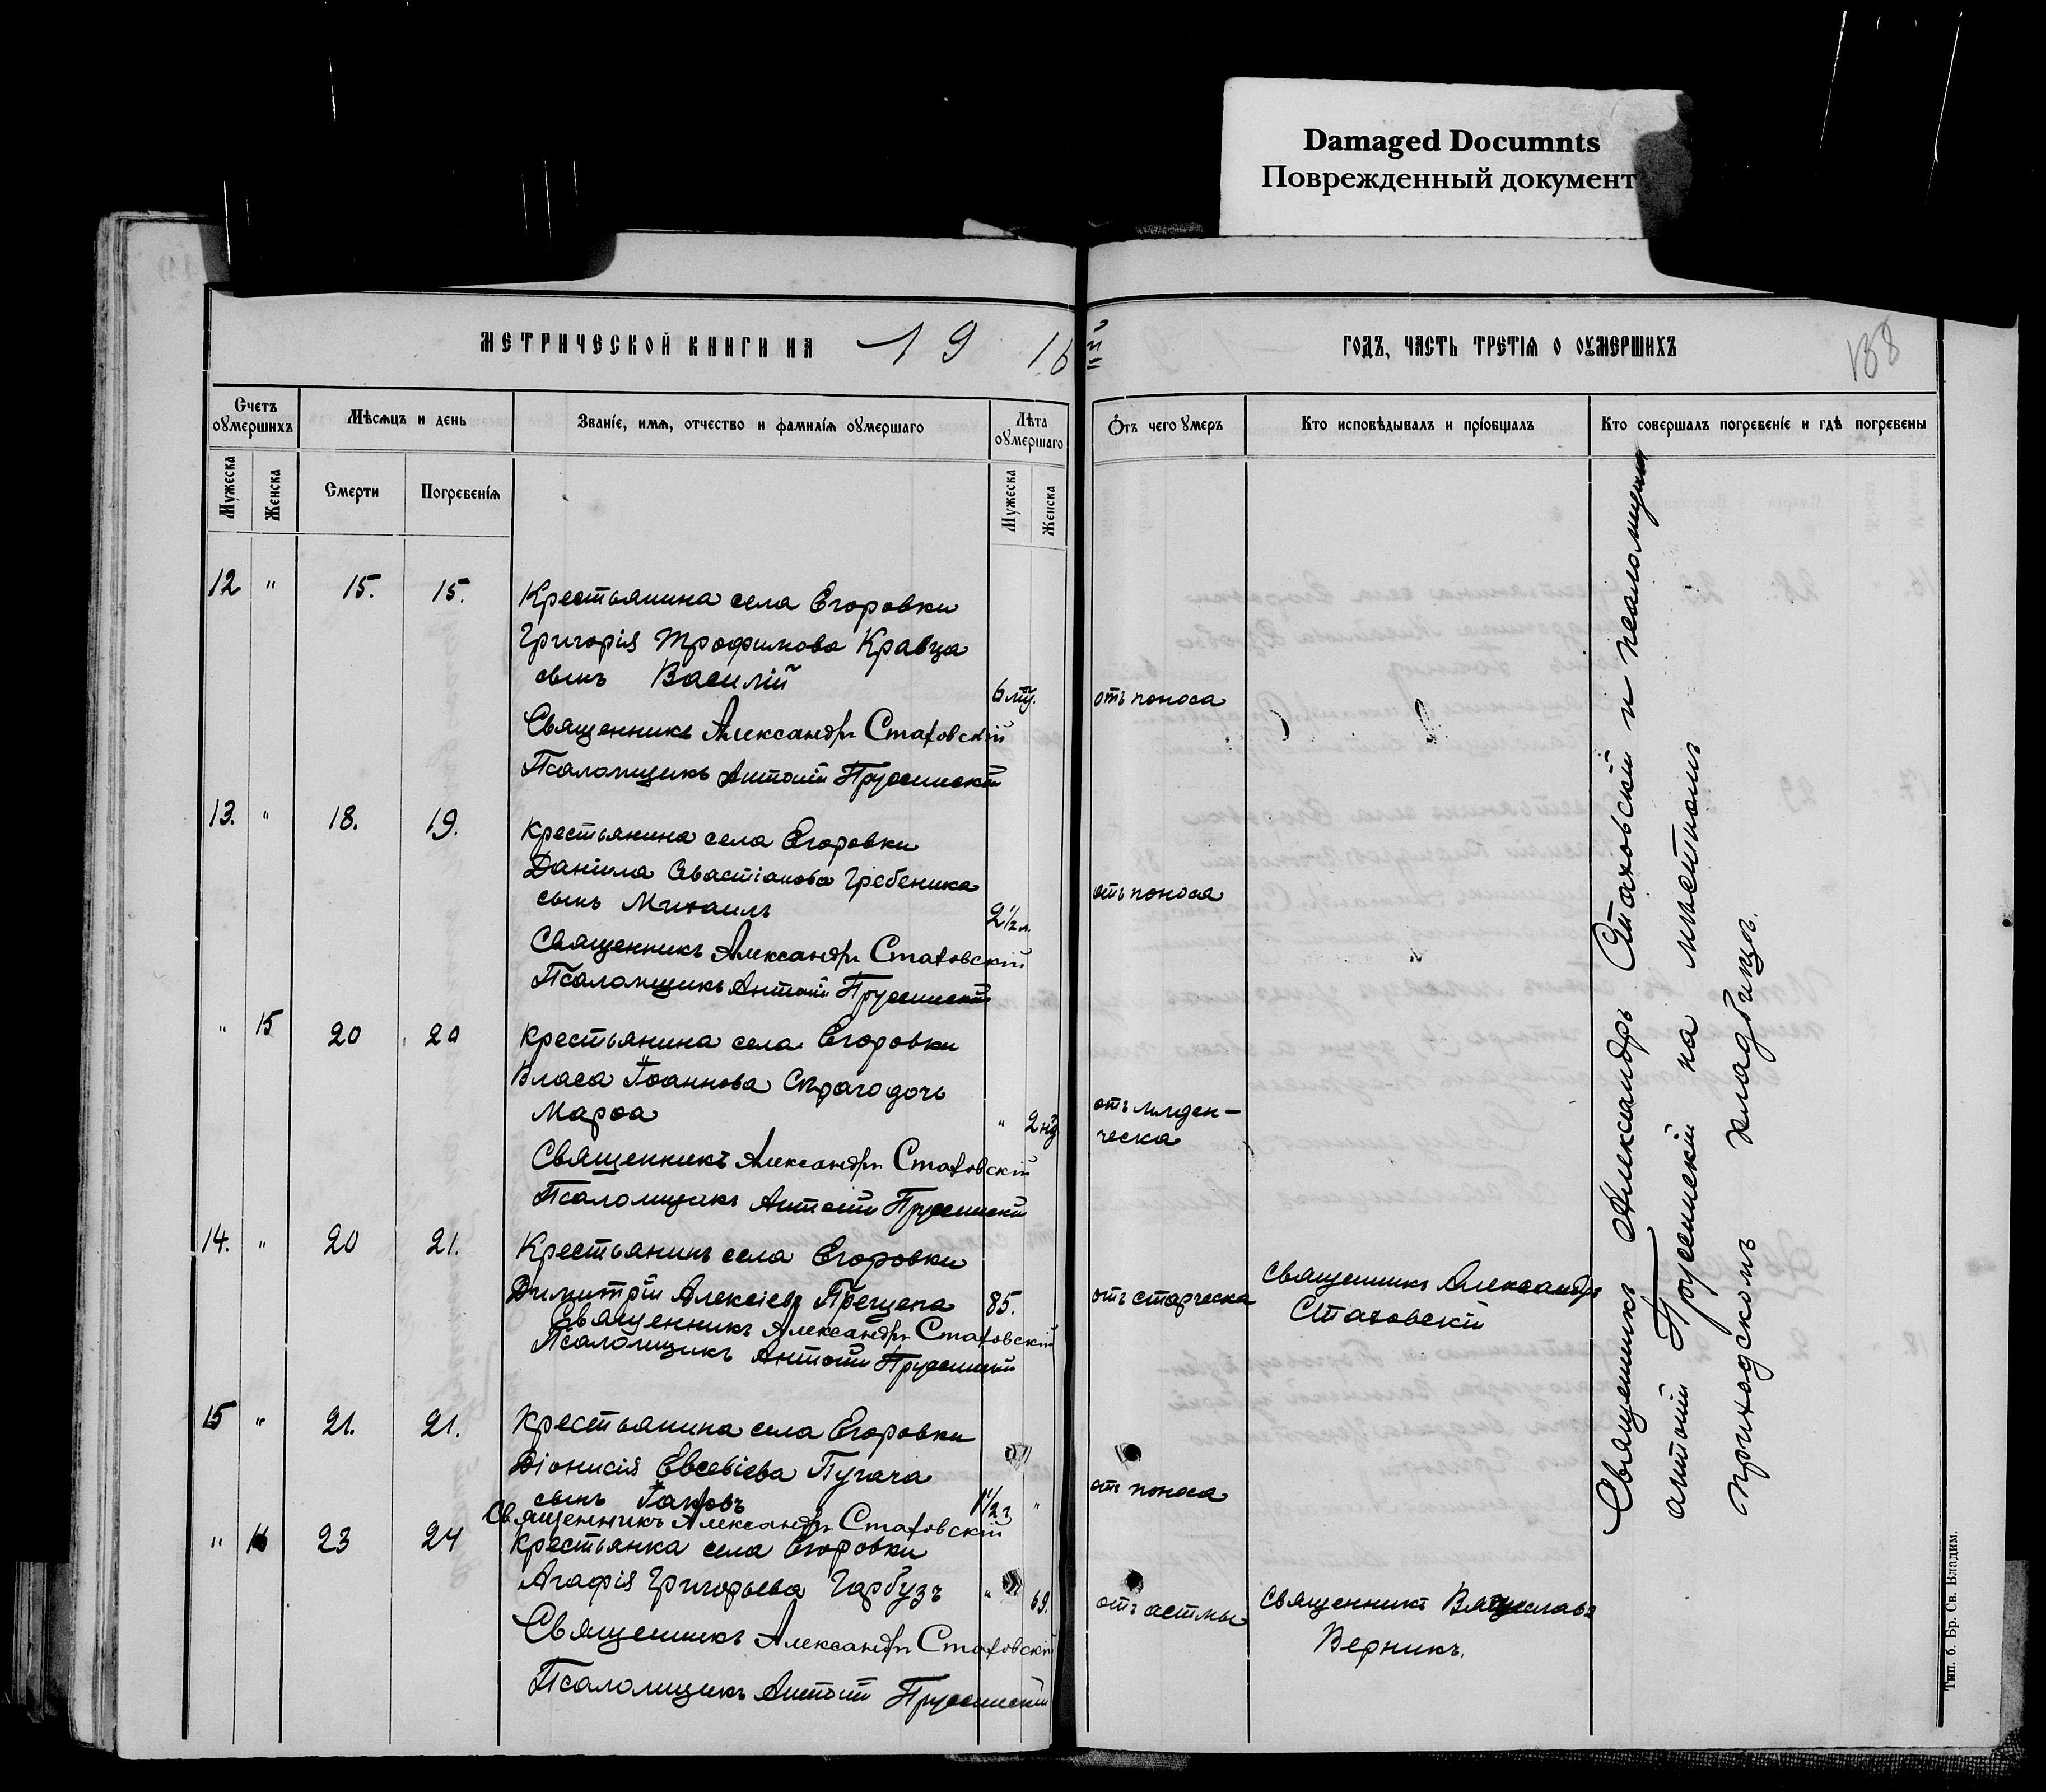 Damaged Documnts
Поврежденный документ
МЕТРИЧЕСКОЙ КНИГИ НА 1916й
ГОДЪ, ЧАСТЬ ТРЕТІЯ О ОУМЕРШИХЪ
138
Счетъ оумершихъ
Мѣсяцъ и день
Званіе, имя, отчество и фамилія оумершаго
Лѣта оумершаго
Отъ чего умеръ
Кто исповѣдывалъ и пріобщалъ
Кто совершалъ погребеніе и гдѣ погребены
Мужеска
Женска
Смерти
Погребенія
Мужеска
Женска
12 " 15. 15. Крестьянина села Егоровки
Григорія Трофимова Кравца
сынъ Василій 6 отъ поноса
Священникъ Александръ Стаховскій
Псаломщикъ Антоній
13. " 18. 19. Крестьянина села Егоровки
Даніила Севастіанова Гребеника
сынъ Михаилъ 2 1/2 л. отъ поноса
Священникъ Александръ Стаховскій
Псаломщикъ Антоній
" 15 20 20 Крестьянина села Егоровки
Власа Іоаннова дочь
Марѳа " 2 нд отъ младен-
ческа
Священникъ Александръ Стаховскій
Псаломщикъ Антоній
14. " 20 21. Крестьянинъ села Егоровки
Димитрій Алексіевъ 85. отъ старческа Священникъ Александръ
Стаховскій
Священникъ Александръ Стаховскій
Псаломщикъ Антоній
15 " 21. 21. Крестьянина села Егоровки
Діонисія Евсевіева Пугача
сынъ Іаковъ 1 1/2 г " отъ поноса
Священникъ Александръ Стаховскій
" 16 23 24 Крестьянка села Егоровки
Агафія Григорьева Гарбузъ " 69. отъ астмы Священникъ Вячеславъ
Верникъ.
Священникъ Александръ Стаховскій
Псаломщикъ Антоній
Священникъ Александръ Стаховскій и псаломщикъ
Антоній на мѣстномъ
приходскомъ кладбищѣ.
Тип. б. Бр. Св. Владим.